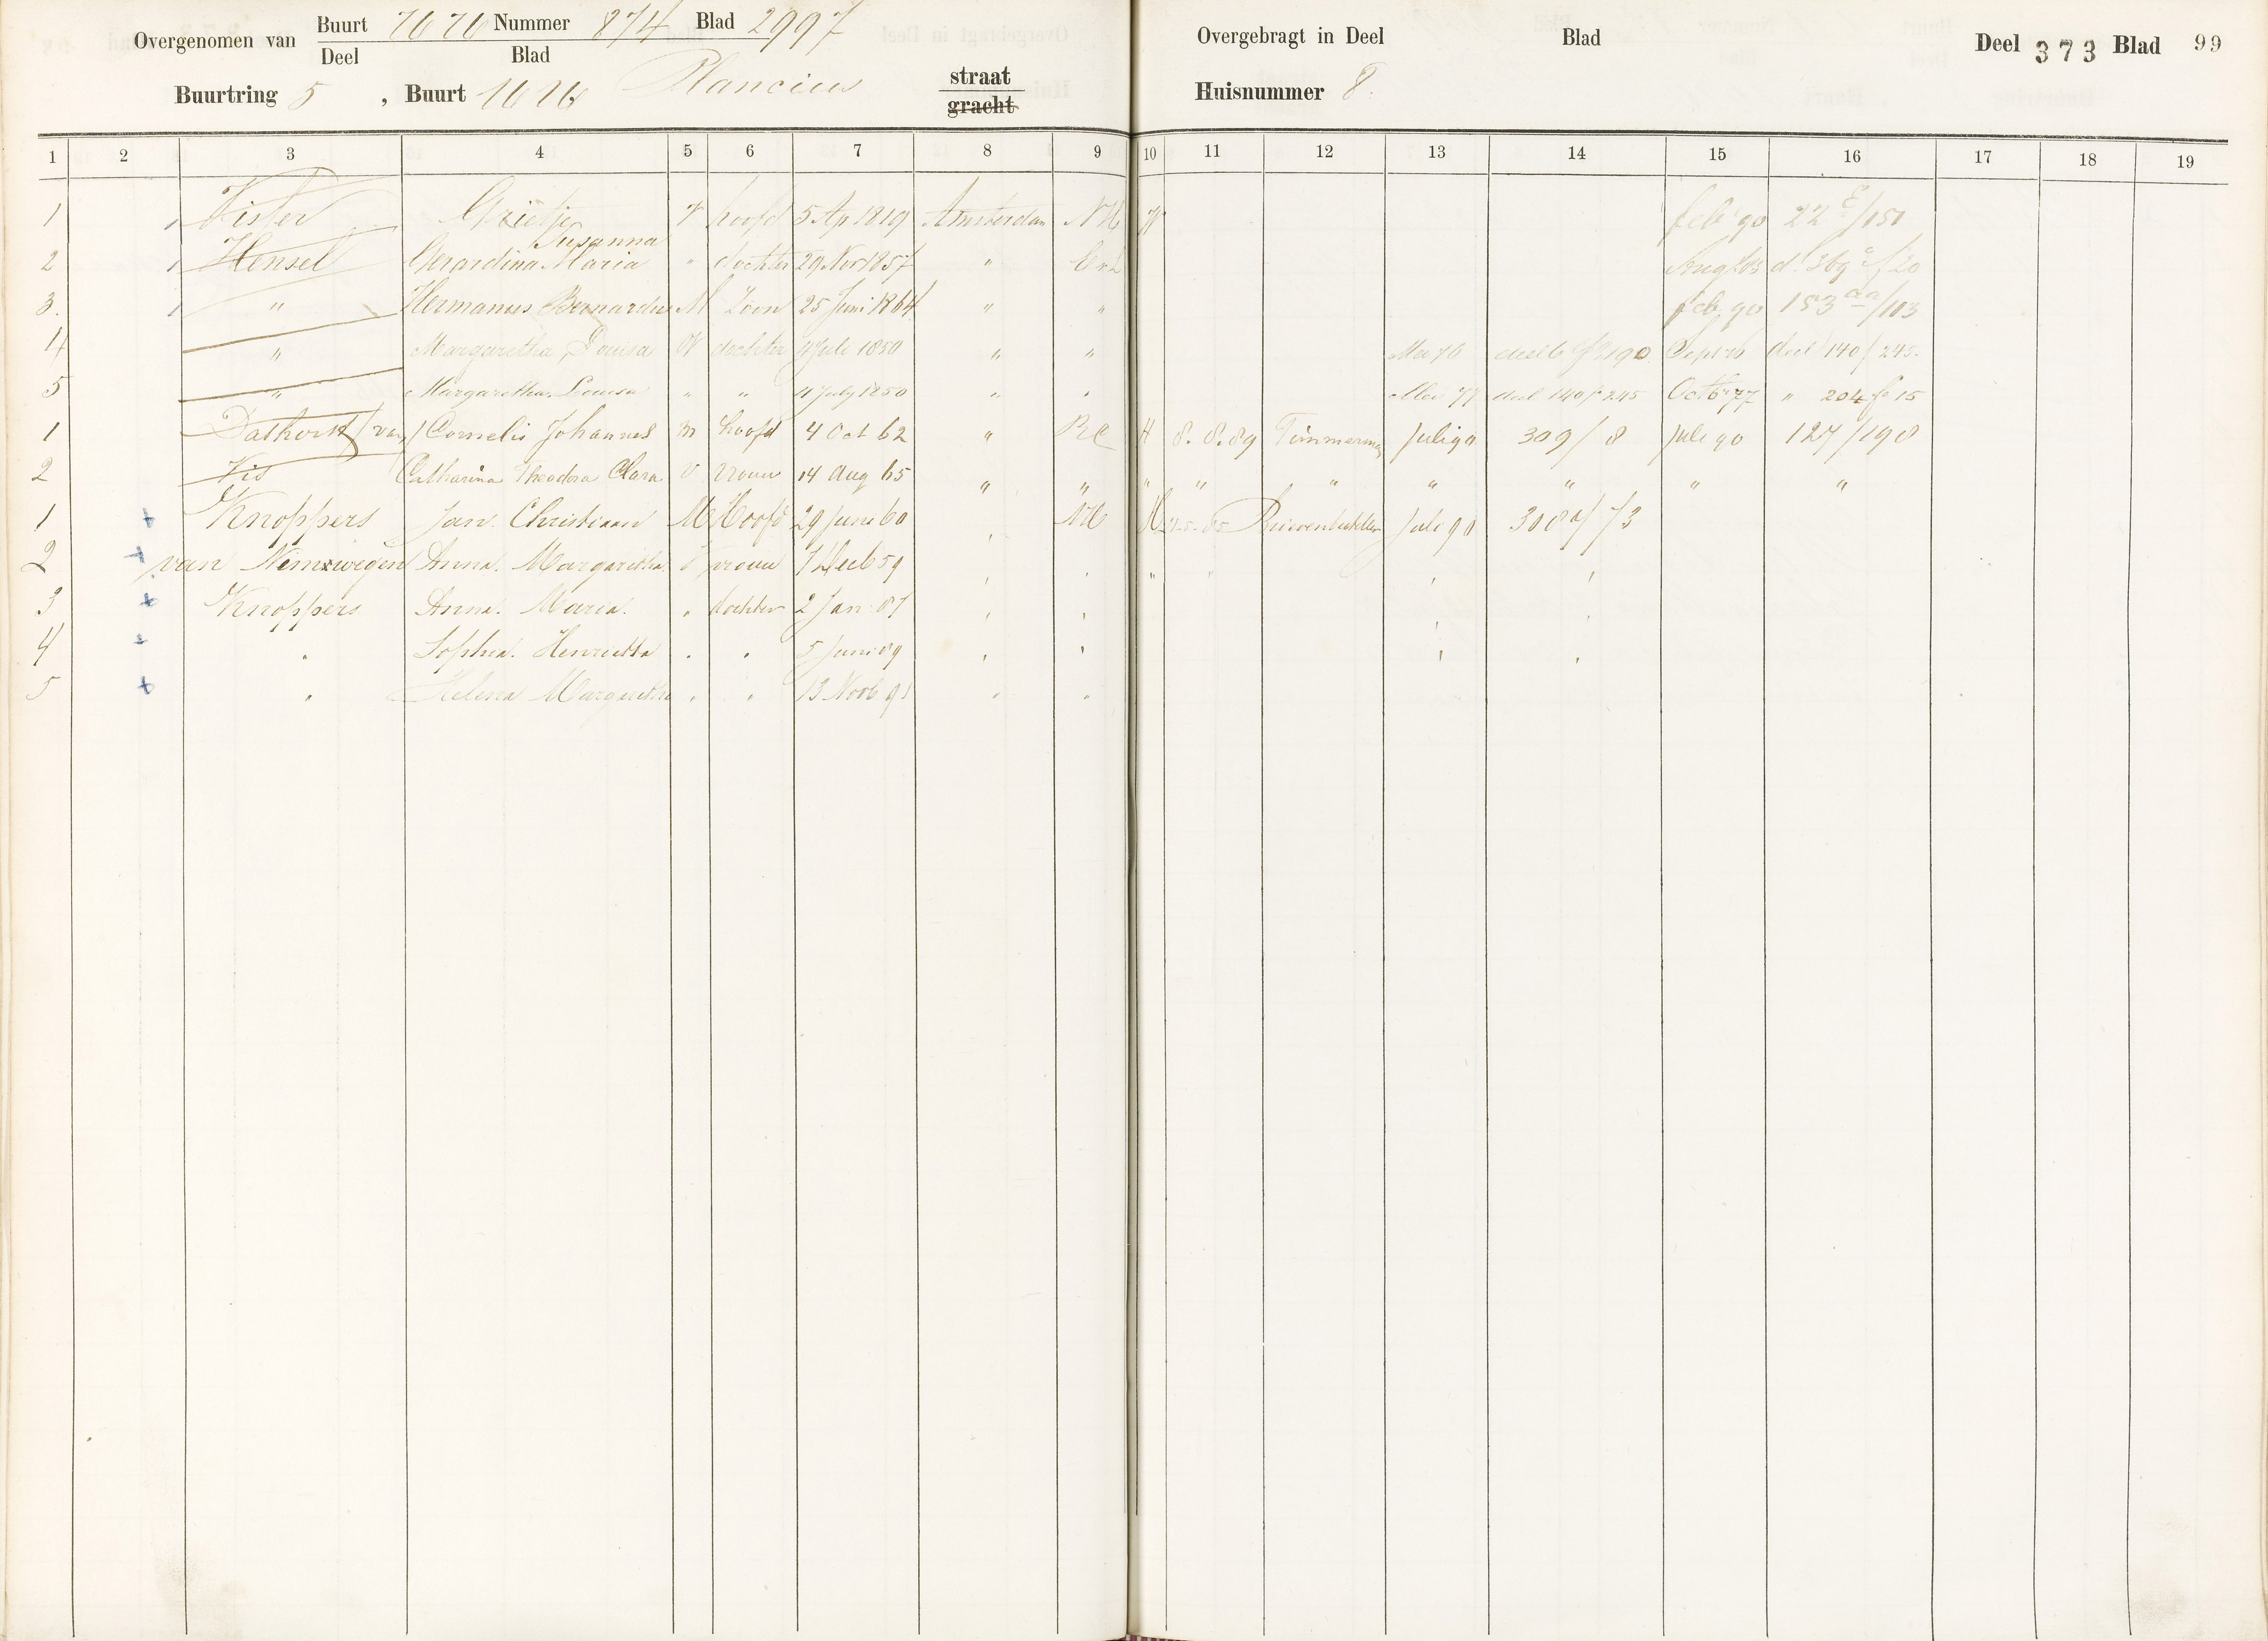 Overgenomen van Buurt Nummer 874 Blad 2997
Deel Blad
Buurtring 5, Buurt Plancius straat
gracht
Overgebragt in Deel Blad
Huisnummer 8.
Deel 373 Blad 99
1 2 3 4 5 6 7 8 9 10 11 12 13 14 15 16 17 18 19
1 Visser Grietje V hoofd 5 Ap 1819 Amsterdam NH W feb 90 22 E/151
Susanna
2 Hensel Gerardina Maria " dochter 29 Nov 1857 " Ev L
3. " Hermanus Bernardus M Zoon 25 Juni 1864 " " feb 90 153 aa/113
4 " Margaretha Louisa V dochter 4 Juli 1850 " " Mei 76 Sept 76 deel 140/245.
5 " Margaretha Louisa " " 4 July 1850 " " Mei 77 deel 140/245 Octb 77 " 204 fo 15
1 Dashorst (van) Cornelis Johannes m hoofd 4 Oct 62 " RC H 8.8.89 Timmerman Juli 90 309/8 Juli 90 127/198
2 Vis Catharina Theodora Clara V vrouw 14 Aug 65 " " " " " " " " "
1 + Knoppers Jan Christiaan M Hoofd 29 Juni 60 , NH H Juli 90 308a/73
2 + van Nimwegen Anna Margaretha V vrouw 7 Decb 59 , , " " , ,
3 + Knoppers Anna Maria. , dochter 2 Jan 87 , , , ,
4 + , Sophia Henrietta . . 5 Juni 89 , , , ,
5 + , Helena Margaretha . , 13 Novb 91 , ,